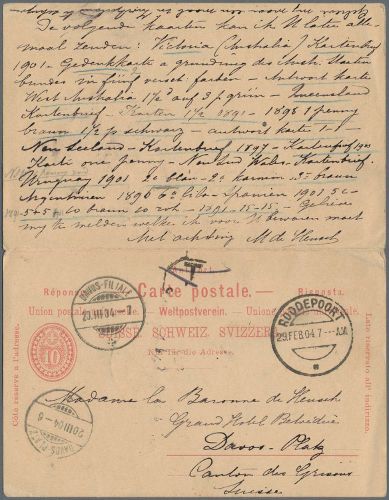 De volgende kaarten kan ik U laten alle
maal zenden: Victoria (Australia) Kartenbrief
1901 - Gedenkkarte a grundung des Austr. Staaten
bundes in fünf versch. farben - Antwort karte
West Australia 1½d auf 3 p. grün - Queensland
Kartenbrief - Karten 1½ 1891 - 1898 1 penny
braun 1/2 p schwarz - antwort karte 1-1
Neu Seeland - Kartenbrief 1897 - Kartenbrief 1901
Karte one penny - Neu Süd Wales - Kartenbrief
Uruguay 1901 2c blau - 2c karmin 3c braun
Argentinien 1896 6c lila - Spanien 1901 5c -
5+5 10 braun 10 rot - 1901 - 15-15 - Gelieve
my te melden welke ik voor U bewaren moet
Met achting M de Heusch
T
Réponse.
Carte postale.
Risposta.
Union postale universelle. - Weltpostverein. - Unione postale universale.
SUISSE. SCHWEIZ. SVIZZERA.
Nur für die Adresse.
Côté réservé à l'adresse.
Lato riservato all' indirizzo.
10
DAVOS-FILIALE
20.III.04.-7
ROODEPOORT
29.FEB.04.7-AM
DAVOS-PLATZ
20.III.04.-8
Madame la Baronne de Heusch
Grand Hotel Belvédère
Davos-Platz
Canton des Grisons
Suisse